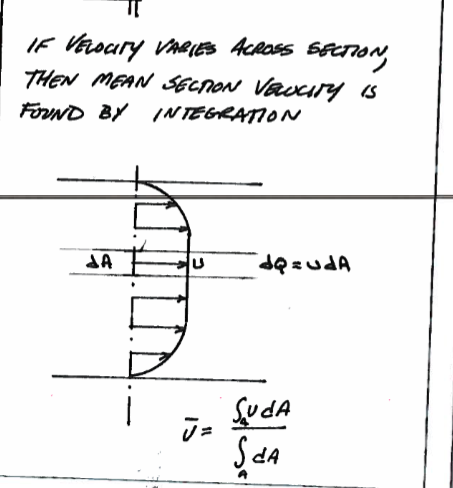 IF VELOCITY VARIES ACROSS SECTION,
THEN MEAN SECTION VELOCITY IS
FOUND BY INTEGRATION
dA U dQ = U dA
Ū = ∫_A U dA / ∫_A dA